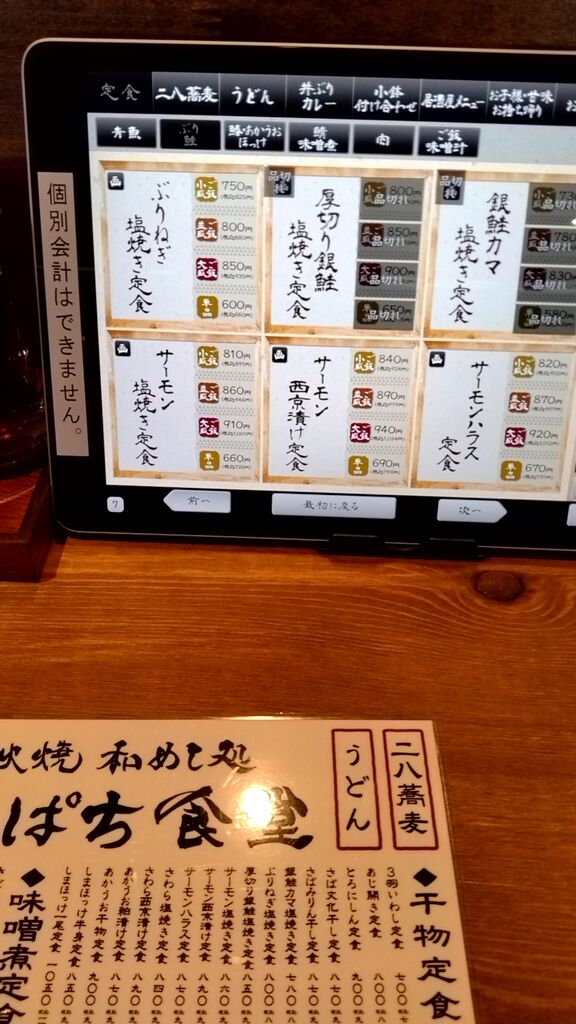 定食
二八蕎麦
うどん
丼ぶり
カレー
小鉢
付け合わせ
居酒屋メニュー
お子様・甘味
お持ち帰り
青魚
ぶり
鮭
鯖
味噌煮
肉
ご飯
味噌汁
個別会計はできません。
ぶりねぎ
塩焼き定食
ご飯小盛 750円
ご飯並盛 800円
ご飯大盛 850円
単品 600円
品切れ
厚切り銀鮭
塩焼き定食
800円
850円
品切れ
900円
品切れ
650円
品切れ
品切れ
銀鮭カマ
塩焼き定食
品切れ
品切れ
品切れ
サーモン
塩焼き定食
ご飯小盛 810円
ご飯並盛 860円
ご飯大盛 910円
単品 660円
サーモン
西京漬け定食
ご飯小盛 840円
ご飯並盛 890円
ご飯大盛 940円
単品 690円
サーモンハラス
定食
ご飯小盛 820円
ご飯並盛 870円
ご飯大盛 920円
単品 670円
7
前へ
最初に戻る
次へ
炊焼 和めし処
ぱち食堂
二八蕎麦
うどん
◆干物定食
3羽いわし定食 七〇〇
あじ開き定食 八〇〇
とろにしん定食 九〇〇
さば文化干し定食
さばみりん干し定食
銀鮭カマ塩焼き定食 七八〇
ぶりねぎ塩焼き定食 八〇〇
厚切り銀鮭塩焼き定食 八五〇
サーモン塩焼き定食 八六〇
サーモン西京漬け定食
サーモンハラス定食
さわら塩焼き定食 八四〇
さわら西京漬け定食 八七〇
あかうお粕漬け定食 八七〇
あかうお干物定食 九〇〇
しまほっけ半身定食 八五〇
しまほっけ一尾定食 一〇五〇
◆味噌煮定食